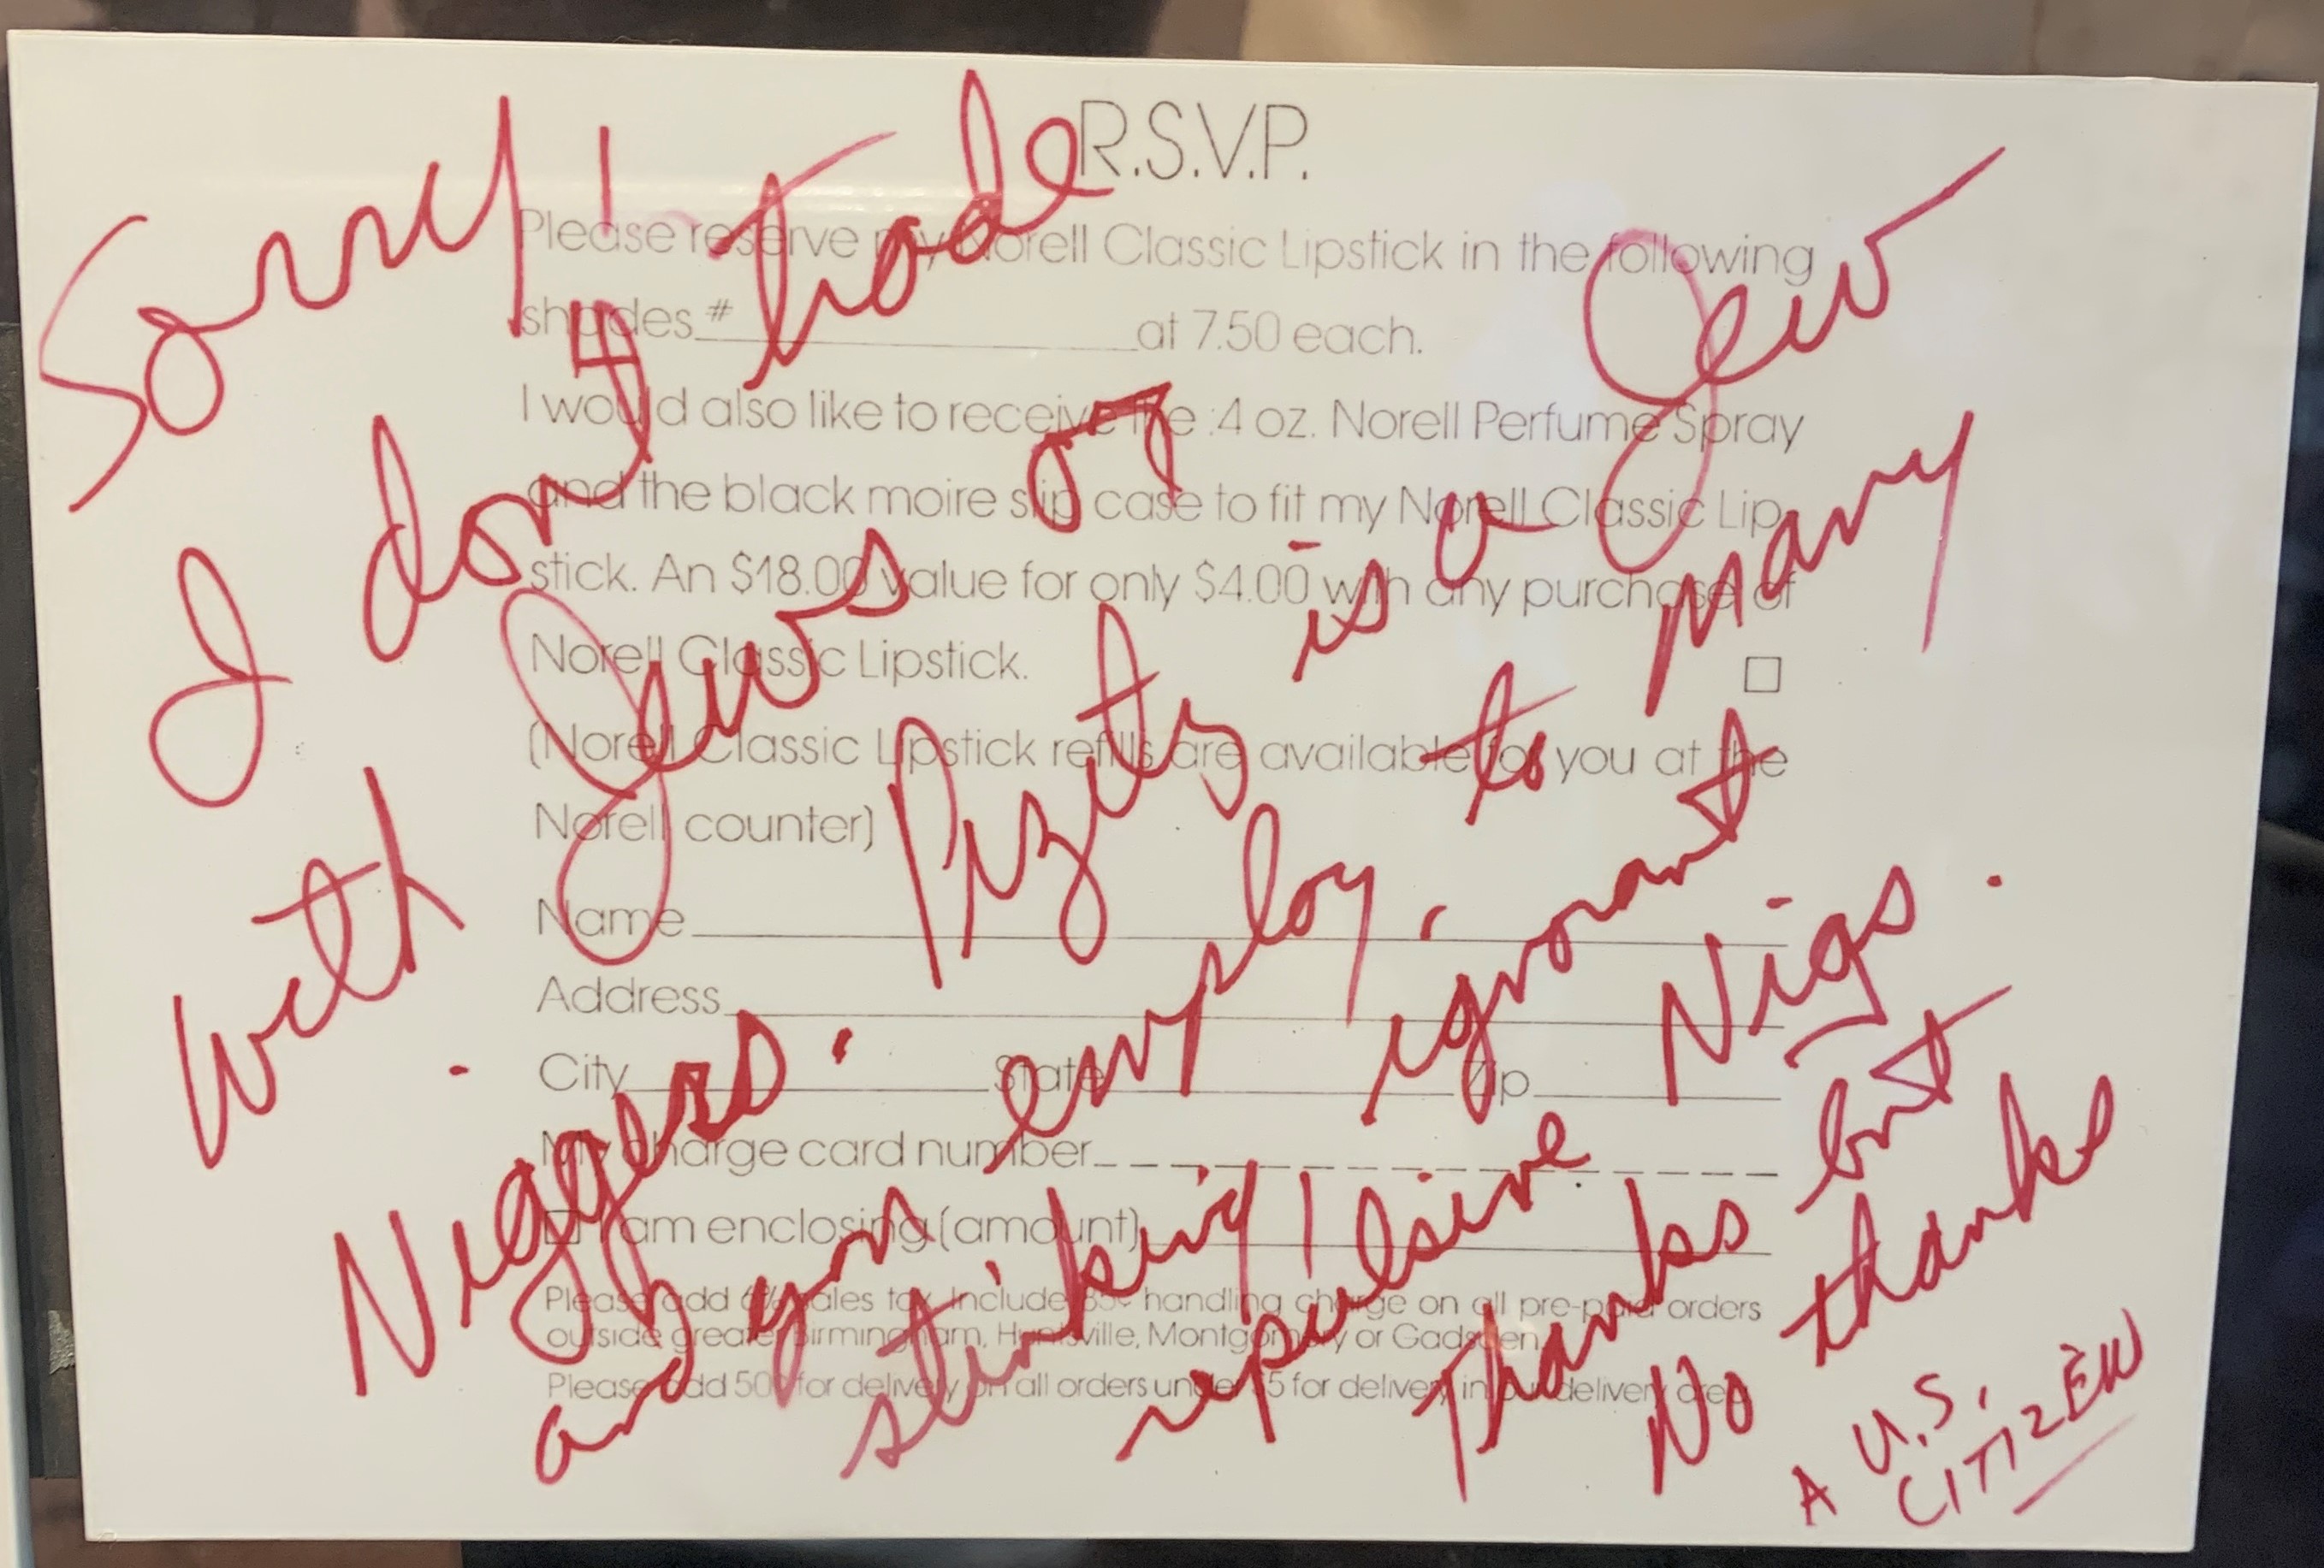 R.S.V.P.
Please reserve my Norell Classic Lipstick in the following
shades # at 7.50 each.
I would also like to receive the .4 oz. Norell Perfume Spray
and the black moire slip case to fit my Norell Classic Lip-
stick. An $18.00 value for only $4.00 with any purchase of
Norell Classic Lipstick.
(Norell Classic Lipstick refills are available for you at the
Norell counter)
Name
Address
City State Zip
My charge card number
I am enclosing (amount)
Please add 6% sales tax. Include 85¢ handling charge on all pre-paid orders
outside greater Birmingham, Huntsville, Montgomery or Gadsden.
Please add 50¢ for delivery on all orders under $5 for delivery in our delivery area.
Sorry!
I don't trade
with Jews or
Niggers. Pizitz is a Jew
and you employ, to many
stinking! ignorant
repulsive Nigs.
Thanks but
No thanks
A U.S.
CITIZEN